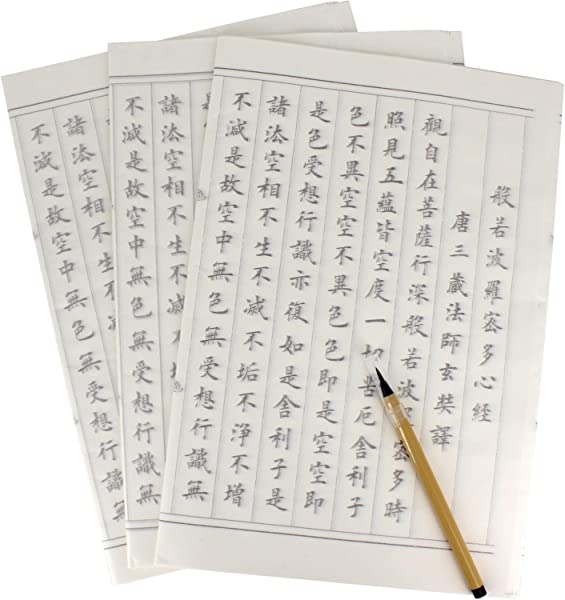 般若波羅密多心經
唐三藏法師玄奘譯
觀自在菩薩行深般若波密多時
照見五蘊皆空度一切苦厄舍利子
色不異空空不異色色即是空空即
是色受想行識亦復如是舍利子是
諸法空相不生不滅不垢不淨不增
不減是故空中無色無受想行識無
諸法空相不生不滅
不減是故空中無色無受想行識無
諸法空相不生不
不減是故空中無色無受想行識無